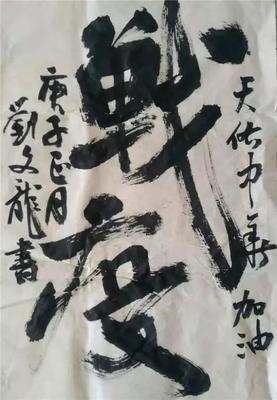 天佑中華 加油
戰疫
庚子正月
劉文龍書